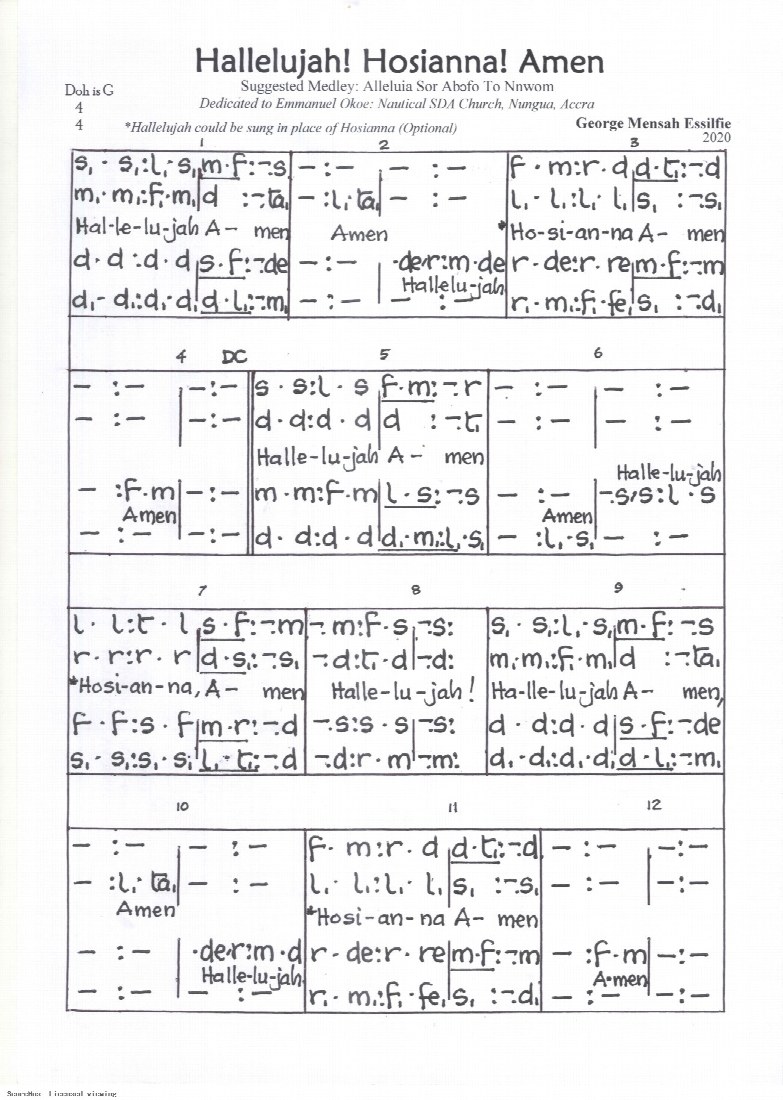 Hallelujah! Hosianna! Amen
Suggested Medley: Alleluia Sor Abofo To Nnwom
Doh is G
Dedicated to Emmanuel Okoe: Nautical SDA Church, Nungua, Accra
4
4
*Hallelujah could be sung in place of Hosianna (Optional)
George Mensah Essilfie
2020
1 2 3
s, · s,:l, · s,|m · f:-s | - :- | - :- | f · m:r · d|d · t,:-d
m, · m,:f, · m,|d :-ta, | - :l, ta,| - :- | l, · l,:l, · l,|s, :-s,
Hal-le-lu-jah A- men Amen *Ho-si-an-na A- men
d · d :d · d|s · f:-de | - :- | ·de r:m de | r · de:r · re|m · f:-m
Hallelu-jah
d, · d,:d, · d,|d · l,:-m, | - :- | - :- | r, · m,:f, · fe,|s, :-d,
4 DC 5 6
- :- |- :- || s · s:l · s|f · m:-r | - :- | - :-
- :- |- :- || d · d:d · d|d :-t, | - :- | - :-
Halle-lu-jah A- men
Halle-lu-jah
- :f · m|- :- || m · m:f · m|l · s:-s | - :- |-s/s:l · s
Amen Amen
- :- |- :- || d · d:d · d|d · m,:l, · s, | - :l, · s,| - :-
7 8 9
l · l:t · l|s · f:-m | - m:f · s|-s: | s, · s,:l, · s,|m · f:-s
r · r:r · r|d · s,:-s, | -d:t, · d|-d: | m, · m,:f, · m,|d :-ta,
*Hosi-an-na, A- men Halle-lu-jah! Ha-lle-lu-jah A- men,
f · f:s · f|m · r:-d | -s:s · s|-s: | d · d:d · d|s · f:-de
s, · s,:s, · s,|l, · t,:-d | -d:r · m|-m: | d, · d,:d, · d,|d · l,:-m,
10 11 12
- :- | - :- | f · m:r · d|d · t,:-d | - :- |- :-
- :l, · ta,| - :- | l, · l,:l, · l,|s, :-s, | - :- |- :-
Amen *Hosi-an-na A- men
- :- | ·de r:m · d | r · de:r · re|m · f:-m | - :f · m|- :-
Halle-lu-jah A-men
- :- | - :- | r, · m,:f, · fe,|s, :-d, | - :- |- :-